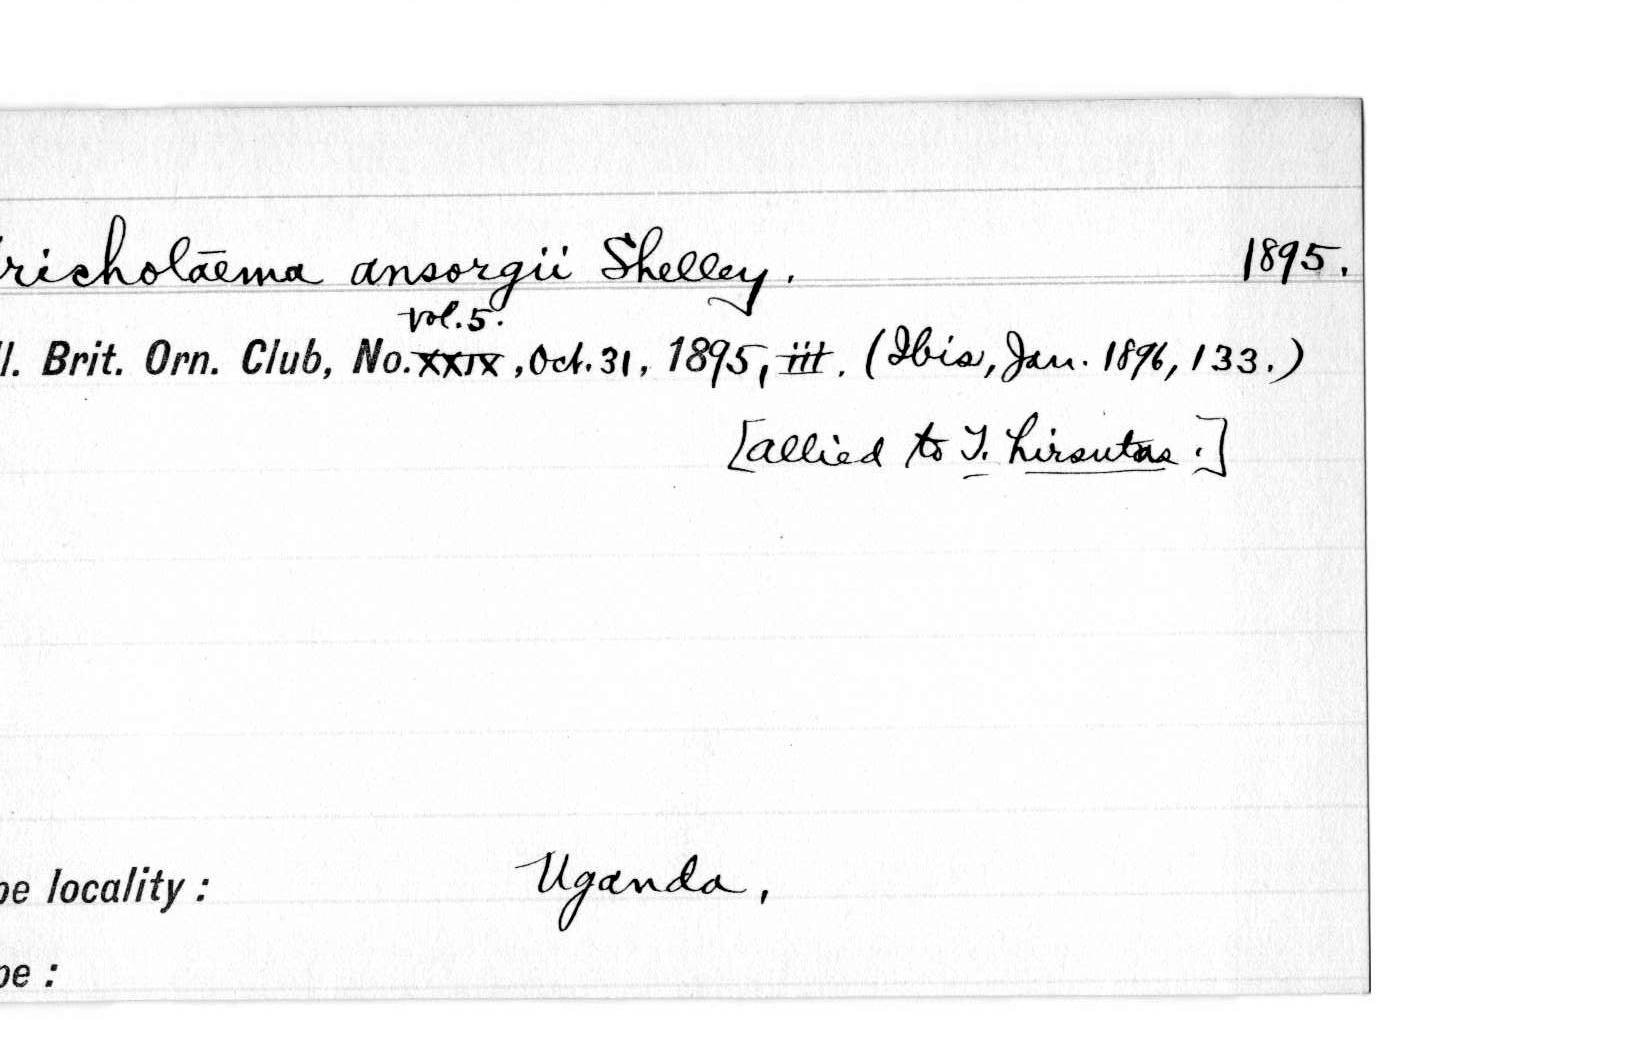 richolāema ansorgii Shelley. 1895.
vol. 5.
ll. Brit. Orn. Club, No. XXIX, Oct. 31, 1895, iii. (Ibis, Jan. 1896, 133.)
[allied to T. hirsutas.]
pe locality: Uganda,
pe: